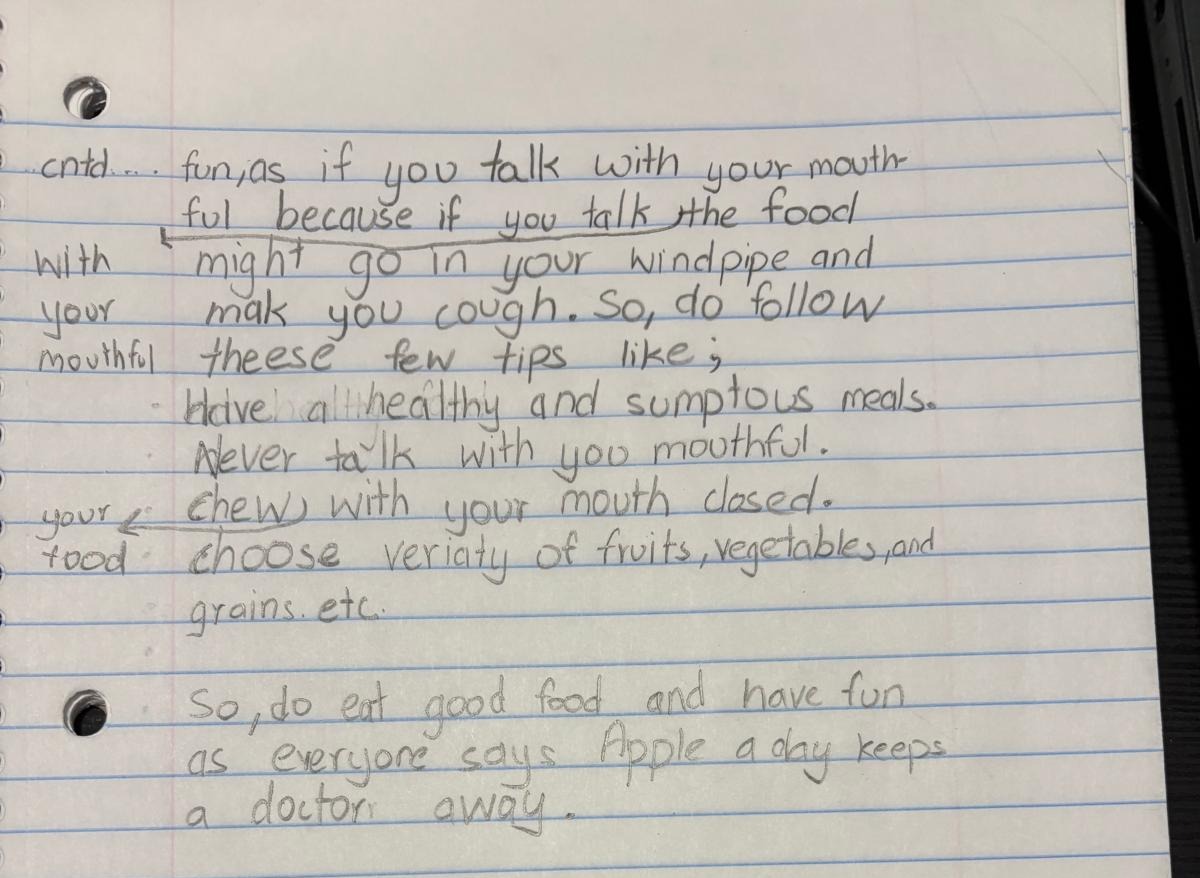 cntd.... fun, as if you talk with your mouth-
ful because if you talk the food
with might go in your windpipe and
your mak you cough. So, do follow
mouthful theese few tips like;
Have a healthy and sumptous meals.
Never talk with you mouthful.
your chew with your mouth closed.
food choose veriaty of fruits, vegetables, and
grains. etc.
So, do eat good food and have fun
as everyone says Apple a day keeps
a doctor away.